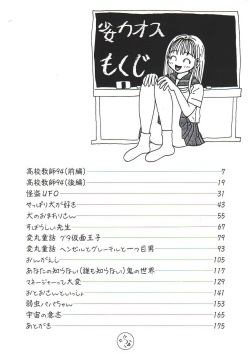 少女カオス
もくじ
高校教師94(前編) 7
高校教師94(後編) 19
怪盗UFO 31
やっぱり犬が好き 43
犬のおまわりさん 55
すばらしい先生 67
変丸童話 ブタ仮面王子 79
変丸童話 ヘンゼルとグレーテルと一つ目男 93
おしんがえし 115
あなたの知らない(誰も知らない)鬼の世界 117
マネージャーって大変 129
おとおさんといっしょ 141
弱虫パパちゃん 153
宇宙の意志 165
あとがき 175